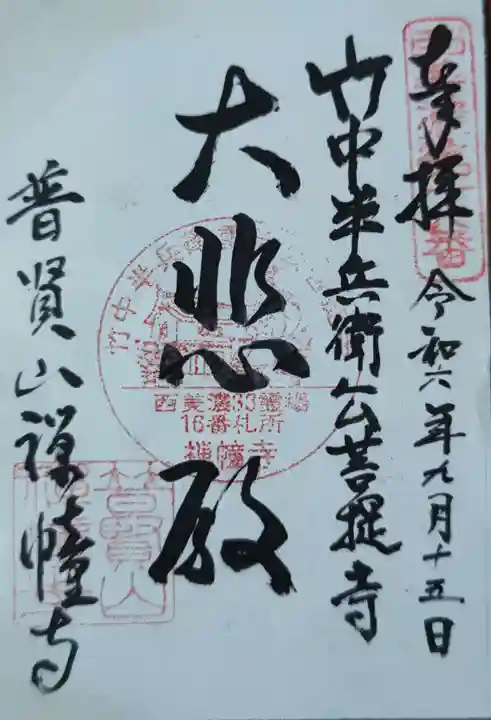 奉拝 令和六年九月十五日
竹中半兵衛公菩提寺
大悲殿
普賢山禅幢寺
竹中半兵衛
西美濃33霊場
16番札所
禅幢寺